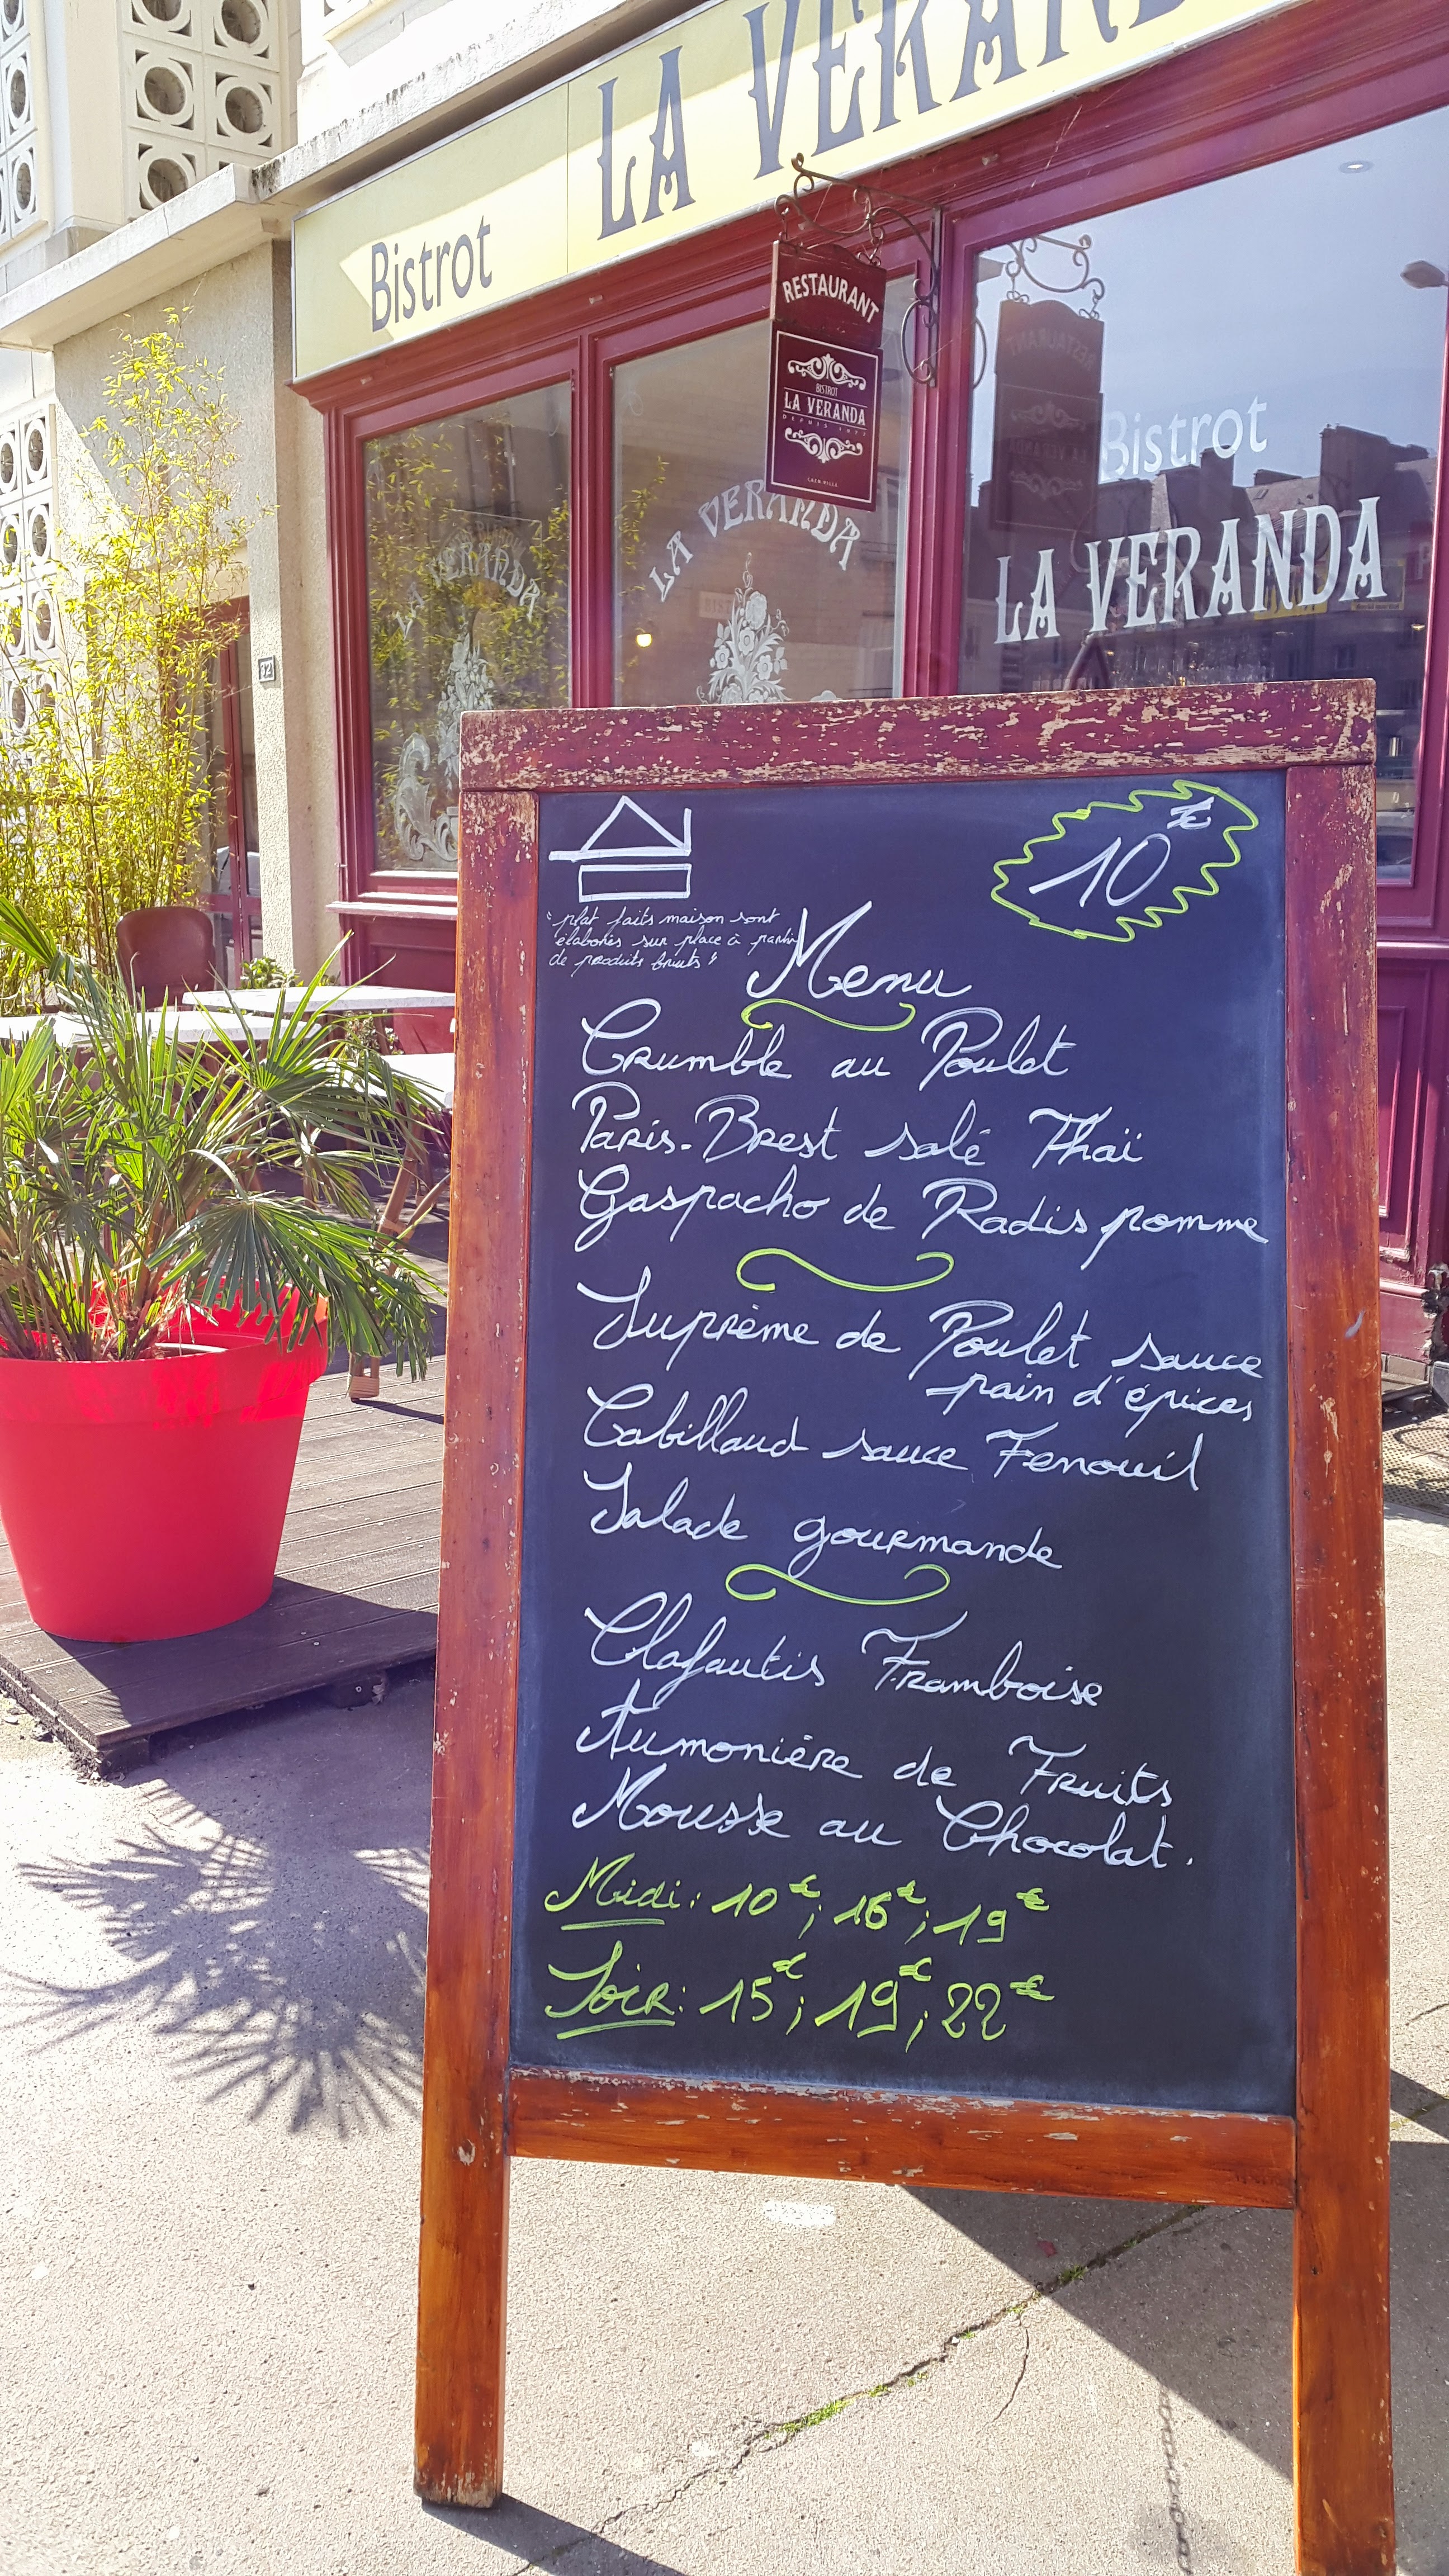 LA VERANDA
Bistrot
RESTAURANT
BISTROT
LA VERANDA
DEPUIS
Bistrot
LA VERANDA
LA VERANDA
LA VERANDA
22
10€
"plat faits maison sont
élaborés sur place à partir
de produits bruts"
Menu
Crumble au Poulet
Paris-Brest salé Thaï
Gaspacho de Radis pomme
Suprème de Poulet sauce
pain d'épices
Cabillaud sauce Fenouil
Salade gourmande
Clafoutis Framboise
Aumonière de Fruits
Mousse au Chocolat.
Midi: 10€; 16€; 19€
Soir: 15€; 19€; 22€